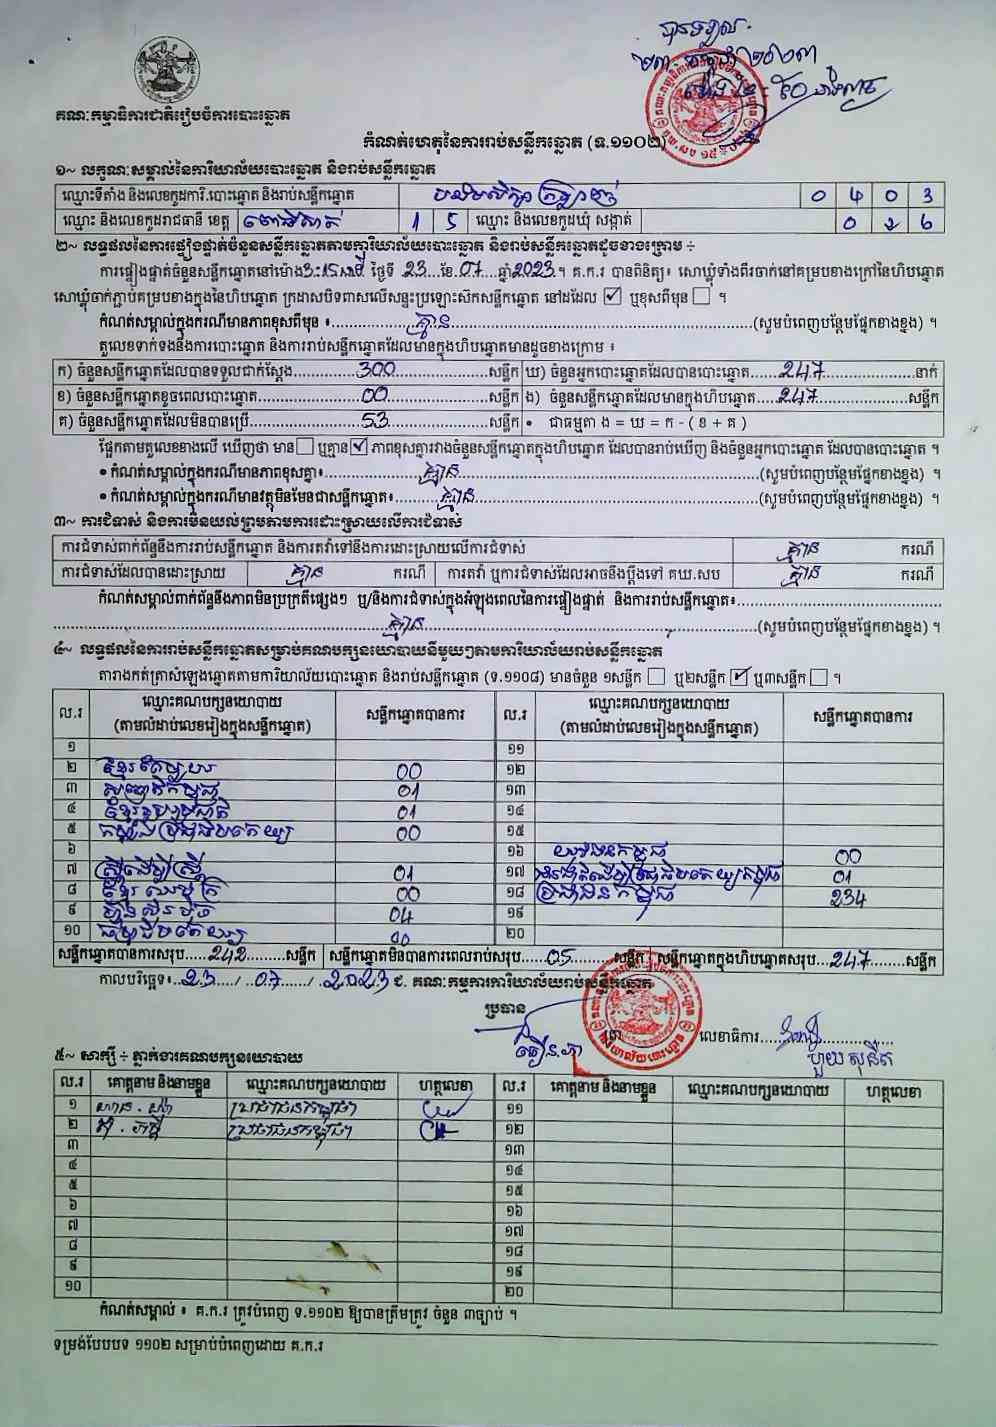 បានទទួល
២៣ កក្កដា ២០២៣
គណៈកម្មាធិការជាតិរៀបចំការបោះឆ្នោត
កំណត់ហេតុនៃការរាប់សន្លឹកឆ្នោត (ទ.១១០២)
១~ លក្ខណៈសម្គាល់នៃការិយាល័យបោះឆ្នោត និងរាប់សន្លឹកឆ្នោត
ឈ្មោះទីតាំង និងលេខកូដការិ.បោះឆ្នោត និងរាប់សន្លឹកឆ្នោត 0 4 0 3
ឈ្មោះ និងលេខកូដរាជធានី ខេត្ត ពោធិ៍សាត់ 1 5 ឈ្មោះ និងលេខកូដឃុំ សង្កាត់
២~ លទ្ធផលនៃការផ្ទៀងផ្ទាត់ចំនួនសន្លឹកឆ្នោតតាមការិយាល័យបោះឆ្នោត និងរាប់សន្លឹកឆ្នោតដូចខាងក្រោម ÷
ការផ្ទៀងផ្ទាត់ចំនួនសន្លឹកឆ្នោតនៅម៉ោង 3:15នាទី ថ្ងៃទី 23 ខែ 07 ឆ្នាំ 2023 ។ គ.ក.រ បានពិនិត្យ៖ សោឃ្លុំទាំងពីរចាក់នៅគម្របខាងក្រៅនៃហិបឆ្នោត
សោឃ្លុំចាក់ភ្ជាប់គម្របខាងក្នុងនៃហិបឆ្នោត ក្រដាសបិទពាសលើសន្ទះប្រឡោះស៊កសន្លឹកឆ្នោត នៅដដែល ☑ ឬខុសពីមុន ☐ ។
កំណត់សម្គាល់ក្នុងករណីមានភាពខុសពីមុន ៖ គ្មាន (សូមបំពេញបន្ថែមផ្នែកខាងខ្នង) ។
តួលេខទាក់ទងនឹងការបោះឆ្នោត និងការរាប់សន្លឹកឆ្នោតដែលមានក្នុងហិបឆ្នោតមានដូចខាងក្រោម ៖
ក) ចំនួនសន្លឹកឆ្នោតដែលបានទទួលជាក់ស្តែង 300 សន្លឹក ឃ) ចំនួនអ្នកបោះឆ្នោតដែលបានបោះឆ្នោត 247 នាក់
ខ) ចំនួនសន្លឹកឆ្នោតខូចពេលបោះឆ្នោត 00 សន្លឹក ង) ចំនួនសន្លឹកឆ្នោតដែលមានក្នុងហិបឆ្នោត 247 សន្លឹក
គ) ចំនួនសន្លឹកឆ្នោតដែលមិនបានប្រើ 53 សន្លឹក • ជាធម្មតា ង = ឃ = ក - ( ខ + គ )
ផ្អែកតាមតួលេខខាងលើ ឃើញថា មាន ☐ ឬគ្មាន ☑ ភាពខុសគ្នារវាងចំនួនសន្លឹកឆ្នោតក្នុងហិបឆ្នោត ដែលបានរាប់ឃើញ និងចំនួនអ្នកបោះឆ្នោត ដែលបានបោះឆ្នោត ។
• កំណត់សម្គាល់ក្នុងករណីមានភាពខុសគ្នា៖ គ្មាន (សូមបំពេញបន្ថែមផ្នែកខាងខ្នង) ។
• កំណត់សម្គាល់ក្នុងករណីមានវត្ថុមិនមែនជាសន្លឹកឆ្នោត៖ គ្មាន (សូមបំពេញបន្ថែមផ្នែកខាងខ្នង) ។
៣~ ការជំទាស់ និងការមិនយល់ព្រមតាមការដោះស្រាយលើការជំទាស់
ការជំទាស់ពាក់ព័ន្ធនឹងការរាប់សន្លឹកឆ្នោត និងការតវ៉ាទៅនឹងការដោះស្រាយលើការជំទាស់ គ្មាន ករណី
ការជំទាស់ដែលបានដោះស្រាយ គ្មាន ករណី ការតវ៉ា ឬការជំទាស់ដែលអាចនឹងប្តឹងទៅ គឃ.សប គ្មាន ករណី
កំណត់សម្គាល់ពាក់ព័ន្ធនឹងភាពមិនប្រក្រតីផ្សេងៗ ឬ/និងការជំទាស់ក្នុងអំឡុងពេលនៃការផ្ទៀងផ្ទាត់ និងការរាប់សន្លឹកឆ្នោត៖
គ្មាន (សូមបំពេញបន្ថែមផ្នែកខាងខ្នង) ។
៤~ លទ្ធផលនៃការរាប់សន្លឹកឆ្នោតសម្រាប់គណបក្សនយោបាយនីមួយៗតាមការិយាល័យរាប់សន្លឹកឆ្នោត
តារាងកត់ត្រាសំឡេងឆ្នោតតាមការិយាល័យបោះឆ្នោត និងរាប់សន្លឹកឆ្នោត (ទ.១១០៨) មានចំនួន ១សន្លឹក ☐ ឬ២សន្លឹក ☑ ឬ៣សន្លឹក ☐ ។
ល.រ ឈ្មោះគណបក្សនយោបាយ (តាមលំដាប់លេខរៀងក្នុងសន្លឹកឆ្នោត) សន្លឹកឆ្នោតបានការ ល.រ ឈ្មោះគណបក្សនយោបាយ (តាមលំដាប់លេខរៀងក្នុងសន្លឹកឆ្នោត) សន្លឹកឆ្នោតបានការ
១ ១១
២ 00 ១២
៣ 01 ១៣
៤ ខ្មែររួបរួមជាតិ 01 ១៤
៥ កម្លាំងប្រជាធិបតេយ្យ 00 ១៥
៦ ១៦ យុវជនកម្ពុជា 00
៧ ស្ត្រីដើម្បីស្ត្រី 01 ១៧ 01
៨ 00 ១៨ ប្រជាជនកម្ពុជា 234
៩ ហ៊្វុនស៊ិនប៉ិច 04 ១៩
១០ 00 ២០
សន្លឹកឆ្នោតបានការសរុប 242 សន្លឹក សន្លឹកឆ្នោតមិនបានការពេលរាប់សរុប 05 សន្លឹក សន្លឹកឆ្នោតក្នុងហិបឆ្នោតសរុប 247 សន្លឹក
កាលបរិច្ឆេទ៖ 23 / 07 / 2023 ជ. គណៈកម្មការការិយាល័យរាប់សន្លឹកឆ្នោត
ប្រធាន
លេខាធិការ
៥~ សាក្សី ÷ ភ្នាក់ងារគណបក្សនយោបាយ
ល.រ គោត្តនាម និងនាមខ្លួន ឈ្មោះគណបក្សនយោបាយ ហត្ថលេខា ល.រ គោត្តនាម និងនាមខ្លួន ឈ្មោះគណបក្សនយោបាយ ហត្ថលេខា
១ ប្រជាជនកម្ពុជា ១១
២ ប្រជាជនកម្ពុជា ១២
៣ ១៣
៤ ១៤
៥ ១៥
៦ ១៦
៧ ១៧
៨ ១៨
៩ ១៩
១០ ២០
កំណត់សម្គាល់ ៖ គ.ក.រ ត្រូវបំពេញ ទ.១១០២ ឱ្យបានត្រឹមត្រូវ ចំនួន ៣ច្បាប់ ។
ទម្រង់បែបបទ ១១០២ សម្រាប់បំពេញដោយ គ.ក.រ